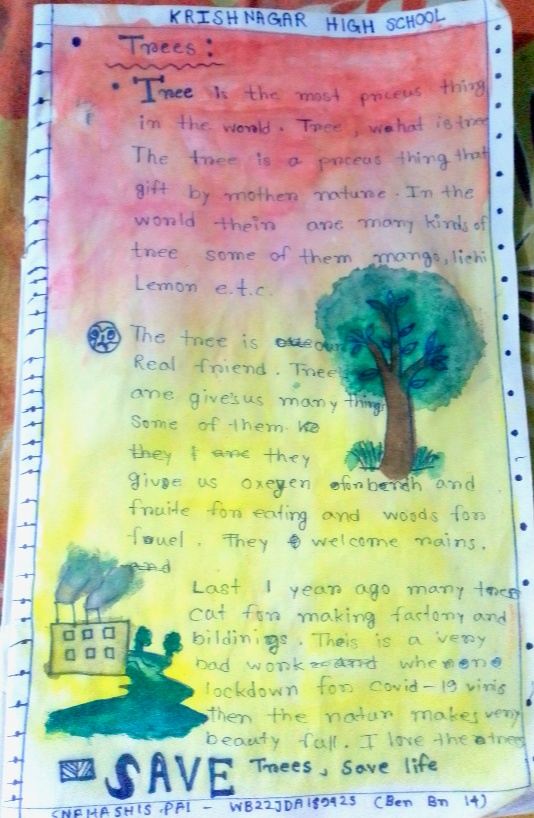 KRISHNAGAR HIGH SCHOOL
Trees :
Tree is the most priceus thing
in the world. Tree, wahat is tree
The tree is a priceus thing that
gift by mother nature. In the
world their are many kinds of
tree some of them mango, lichi
Lemon e.t.c.
The tree is our
Real friend. Tree
are give's us many things
Some of them
they are they
give us oxegen for berth and
fruite for eating and woods for
fouel. They welcome rains.
and
Last 1 year ago many trees
cat for making factory and
bildinigs. Theis is a very
bad work and when
lockdown for Covid-19 viris
then the natur makes very
beauty full. I love the trees
SAVE Trees, Save life
SNEHASHIS PAL - WB22JDA189425 (Ben Bn 14)